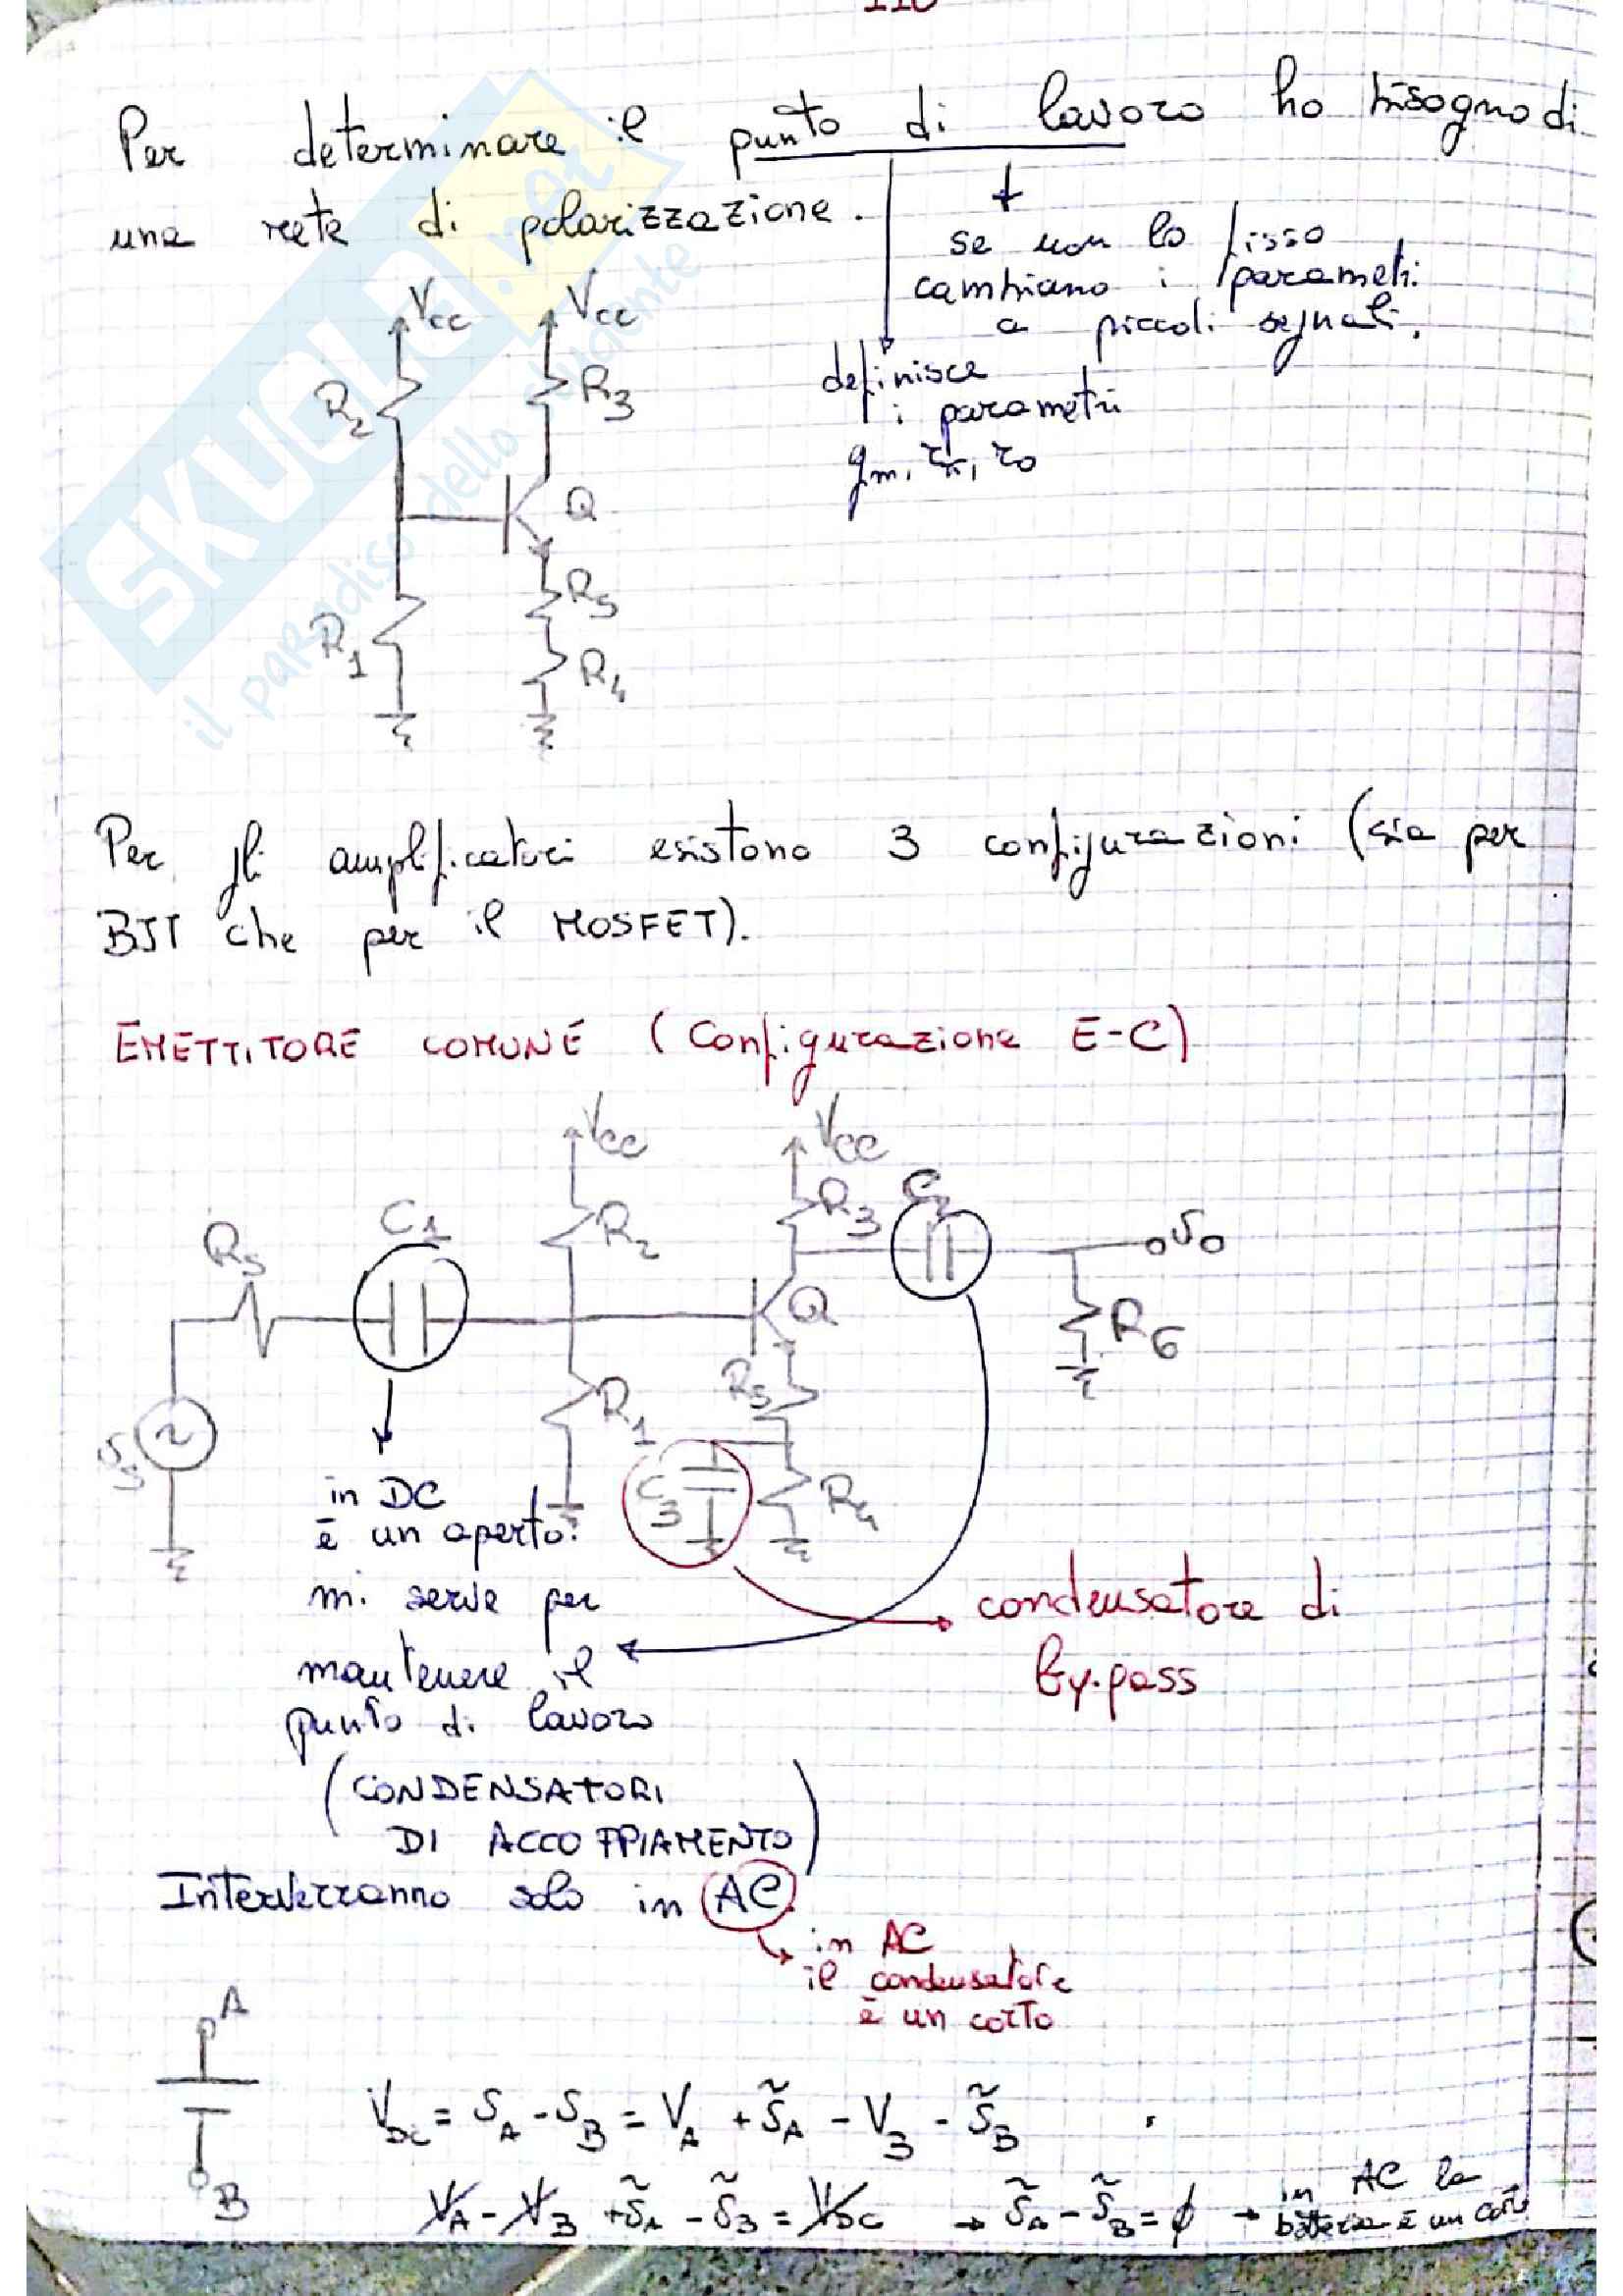 110
Per determinare il punto di lavoro ho bisogno di
una rete di polarizzazione.
se non lo fisso
cambiano i parametri
a piccoli segnali.
definisce
i parametri
gm, rπ, ro
Vcc Vcc
R2 R3
Q
R5
R1 R4
SKUOLA.net
il paradiso dello studente
Per gli amplificatori esistono 3 configurazioni (sia per
BJT che per il MOSFET).
EMETTITORE COMUNE (Configurazione E-C)
Vcc Vcc
C1 R2 R3 C2 vo
Rs Q R6
R1 R5
vs C3 R4
in DC
è un aperto:
mi serve per
mantenere il
punto di lavoro
(CONDENSATORI
DI ACCOPPIAMENTO)
condensatore di
by-pass
Interverranno solo in AC.
in AC
il condensatore
è un corto
A
B
VDC = vA - vB = VA + ṽA - VB - ṽB
VA - VB + ṽA - ṽB = VDC → ṽA - ṽB = ϕ → in AC la
batteria è un corto